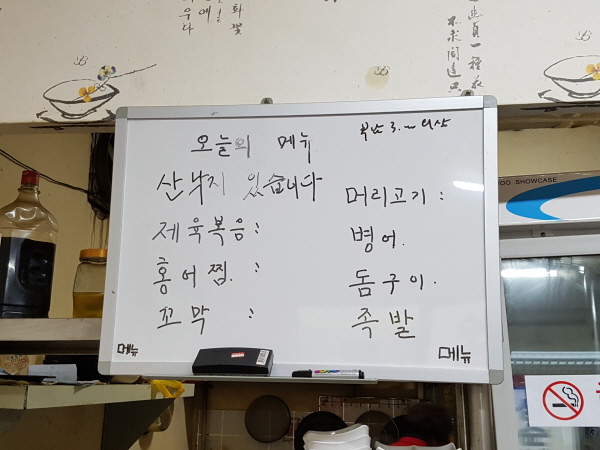 우다
에!
화꽃
오늘의 메뉴
산낙지 있습니다
제육복음:
홍어찜:
꼬막 :
머리고기:
병어.
돔구이.
족발
메뉴
메뉴
OO SHOWCASE